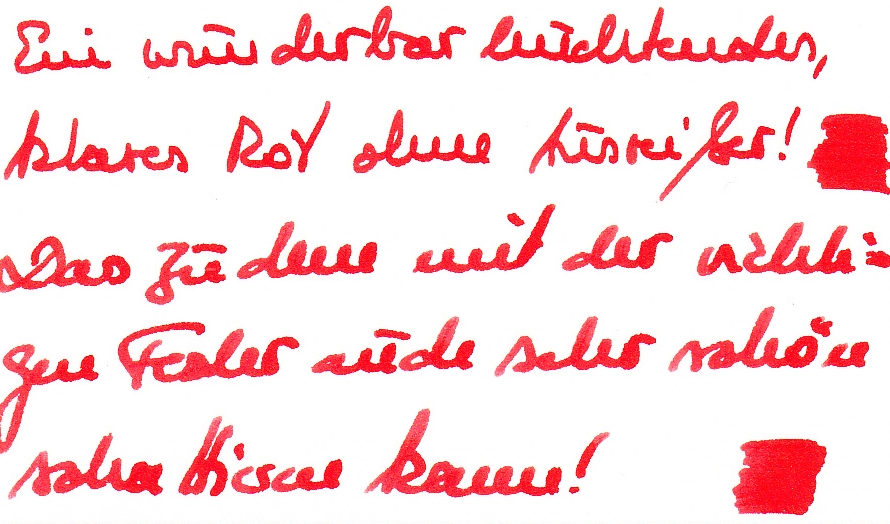 Ein wunderbar leuchtendes,
klares Rot ohne Ausreißer!
Das zudem mit der richti=
gen Feder auch sehr schön
schattieren kann!